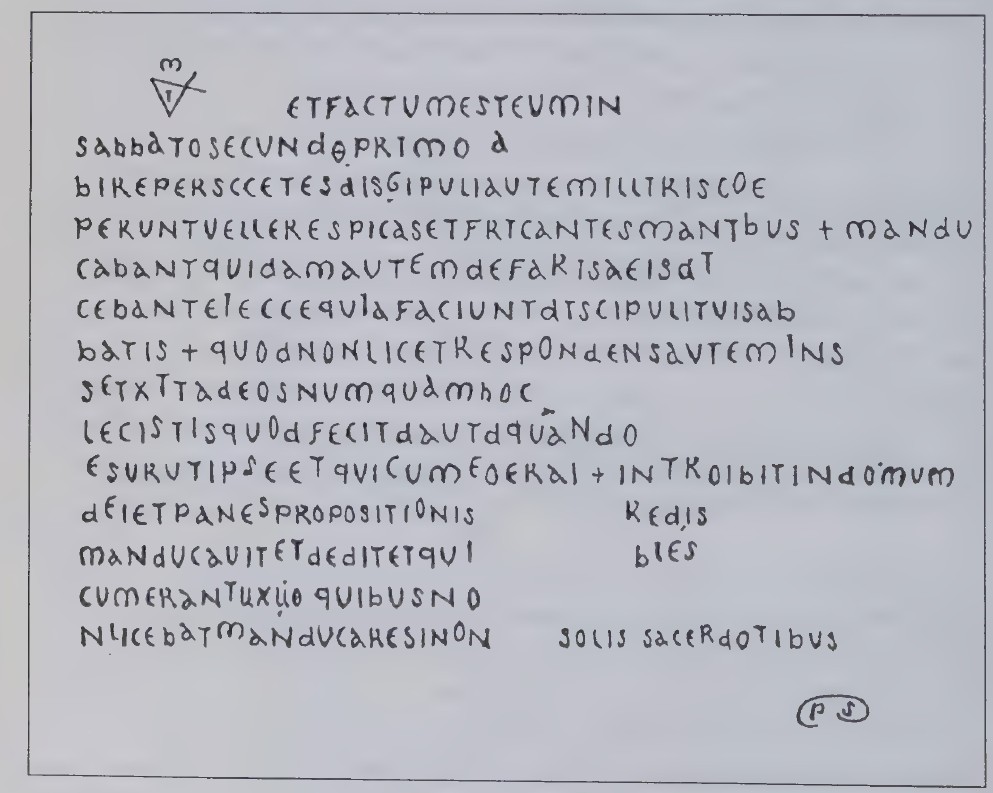 M
T
ETFACTUMESTEUMIN
SABBATOSECUNDOPRIMO A
BIREPERSCCETESDISGIPULIAUTEMILLTRISCOE
PERUNTVELLERESPICASETFRTCANTESMANTBUS + MANDU
CABANTQUIDAMAUTEMDEFARISAEISDT
CEBANTELECCEQUIAFACIUNTDTSCIPULITUISAB
BATIS + QUODNONLICETRESPONDENSAUTEMINS
SETXTTADEOSNUMQUAMHOC
LECISTISQUODFECITDAUTDQUANDO
ESURUTIPSEETQUICUMEOERAI + INTROIBITINDOMUM
DEIETPANESPROPOSITIONIS REDIS
MANDUCAUITETDEDITETQUI BLES
CUMERANTUXUO QUIBUSNO
NLICEBATMANDUCARESINON SOLIS SACERDOTIBUS
PS